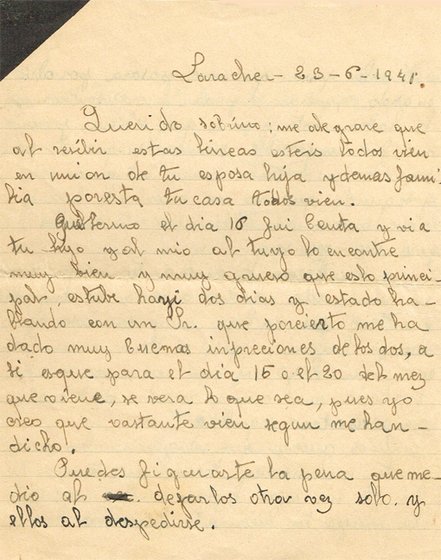 Larache - 23-6-1941.
Querido sobrino: me alegrare que
al recibir estas lineas esteis todos vien
en union de tu esposa hija y demas fami
lia por esta tu casa todos vien.
Guillermo el dia 16 fui Ceuta y vi a
tu hijo y al mio al tuyo lo encontre
muy bien y muy grueso que es lo princi-
pal, estube hayi dos dias y estado ha-
blando con un Sr. que porcierto me ha
dado muy buenas inpreciones de los dos, a
si esque para el dia 15 o el 20 del mez
que viene, se vera lo que sea, pues yo
creo que vastante vien segun me han-
dicho.
Puedes figurarte la pena que me-
dio al dejarlos otra vez solo y
ellos al despedirse.